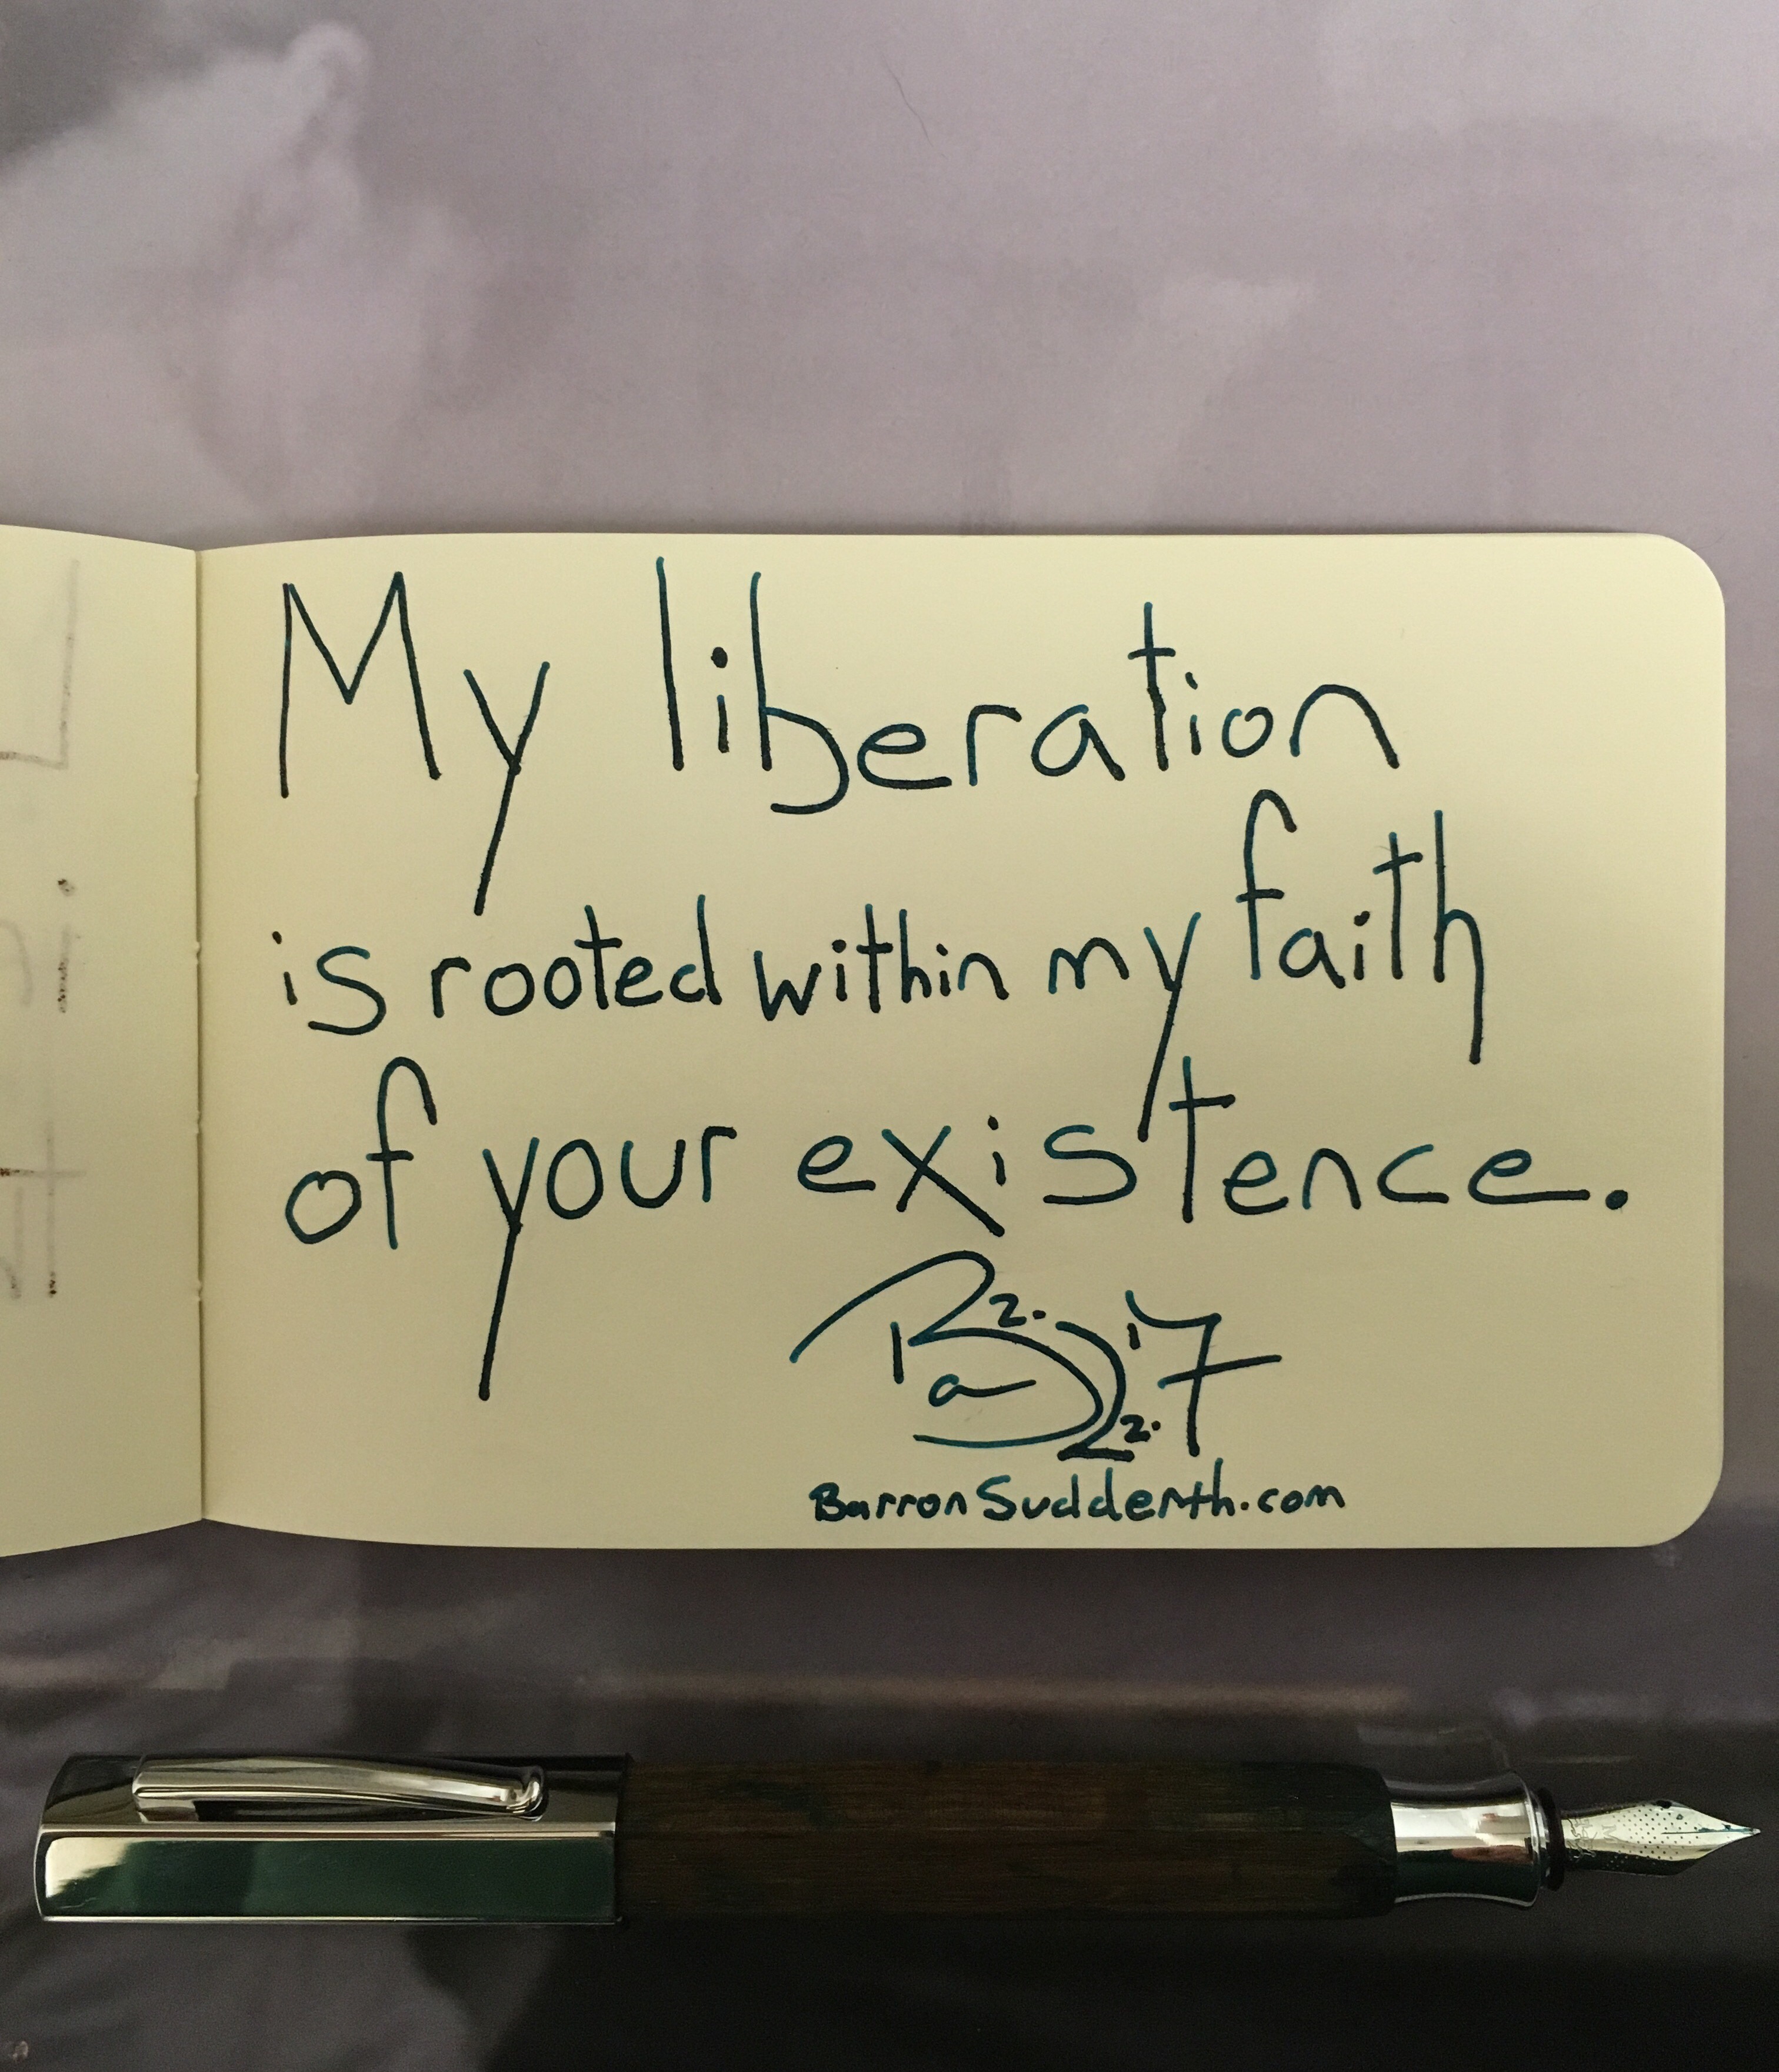 My liberation
is rooted within my faith
of your existence.
BarronSuddenth.com